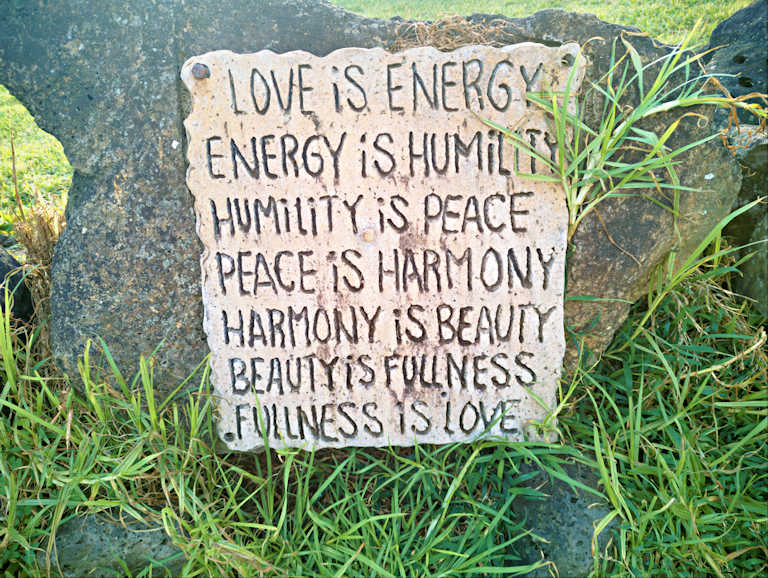 LOVE iS ENERGY
ENERGY iS HUMiLiTY
HUMiLiTY iS PEACE
PEACE iS HARMONY
HARMONY iS BEAUTY
BEAUTY iS FULLNESS
FULLNESS iS LOVE